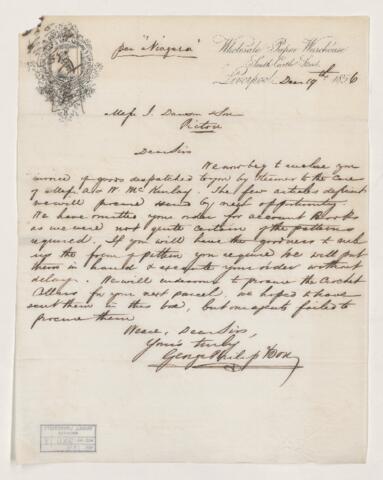 per "Niagara"
Wholesale Paper Warehouse
South Castle Street
Liverpool Decr 19th 1856
Messrs J. Dawson & Son
Pictou
Dear Sirs
We now beg to enclose you
invoice of goods despatched to you by steamer to the care
of Messrs A & W. McKinlay. The few articles deficient
we will procure & send by next opportunity.
We have omitted your order for account Books
as we were not quite certain of the patterns
required. If you will have the goodness to
up the form of pattern you require we will put
them in hand & execute your order without
delay. We will endeavour to procure the Crochet
for your next parcel, we hoped to have
sent them in this box, but our agents failed to
procure them
We are, Dear Sirs,
Yours truly
George Philip & Son